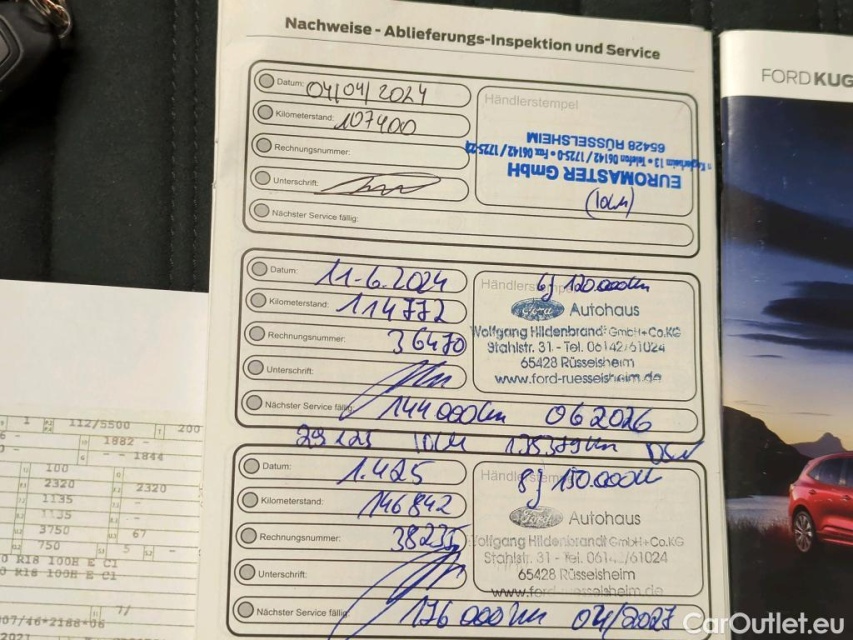 Nachweise - Ablieferungs-Inspektion und Service
FORD KUG
Datum: 04/04/2024
Kilometerstand: 107400
Rechnungsnummer:
Unterschrift:
Nächster Service fällig:
Händlerstempel
65428 RÜSSELSHEIM
13 • Telefon 06142 / 1725-0 • Fax 06142 / 1725-22
EUROMASTER GmbH
Datum: 11-6.2024
Kilometerstand: 114772
Rechnungsnummer: 36470
Unterschrift:
Nächster Service fällig: 144000km 06 2026
6J 120.000km
Ford Autohaus
Wolfgang Hildenbrandt GmbH+Co.KG
Stahlstr. 31 - Tel. 06142/61024
65428 Rüsselsheim
www.ford-ruesselsheim.de
Datum: 1.4.25
Kilometerstand: 146842
Rechnungsnummer: 38235
Unterschrift:
Nächster Service fällig: 176000km 04/2027
8J 150.000km
Ford Autohaus
Wolfgang Hildenbrandt GmbH+Co.KG
Stahlstr. 31 - Tel. 06142/61024
65428 Rüsselsheim
www.ford-ruesselsheim.de
1 112/5500 200
1882 -
- - 1844
100
2320 2320
1135 -
1135 -
3750 67
750 5 -
0 R18 100H E C1
0 R18 100H E C1
7/
07/46*2188*06
2021
CarOutlet.eu